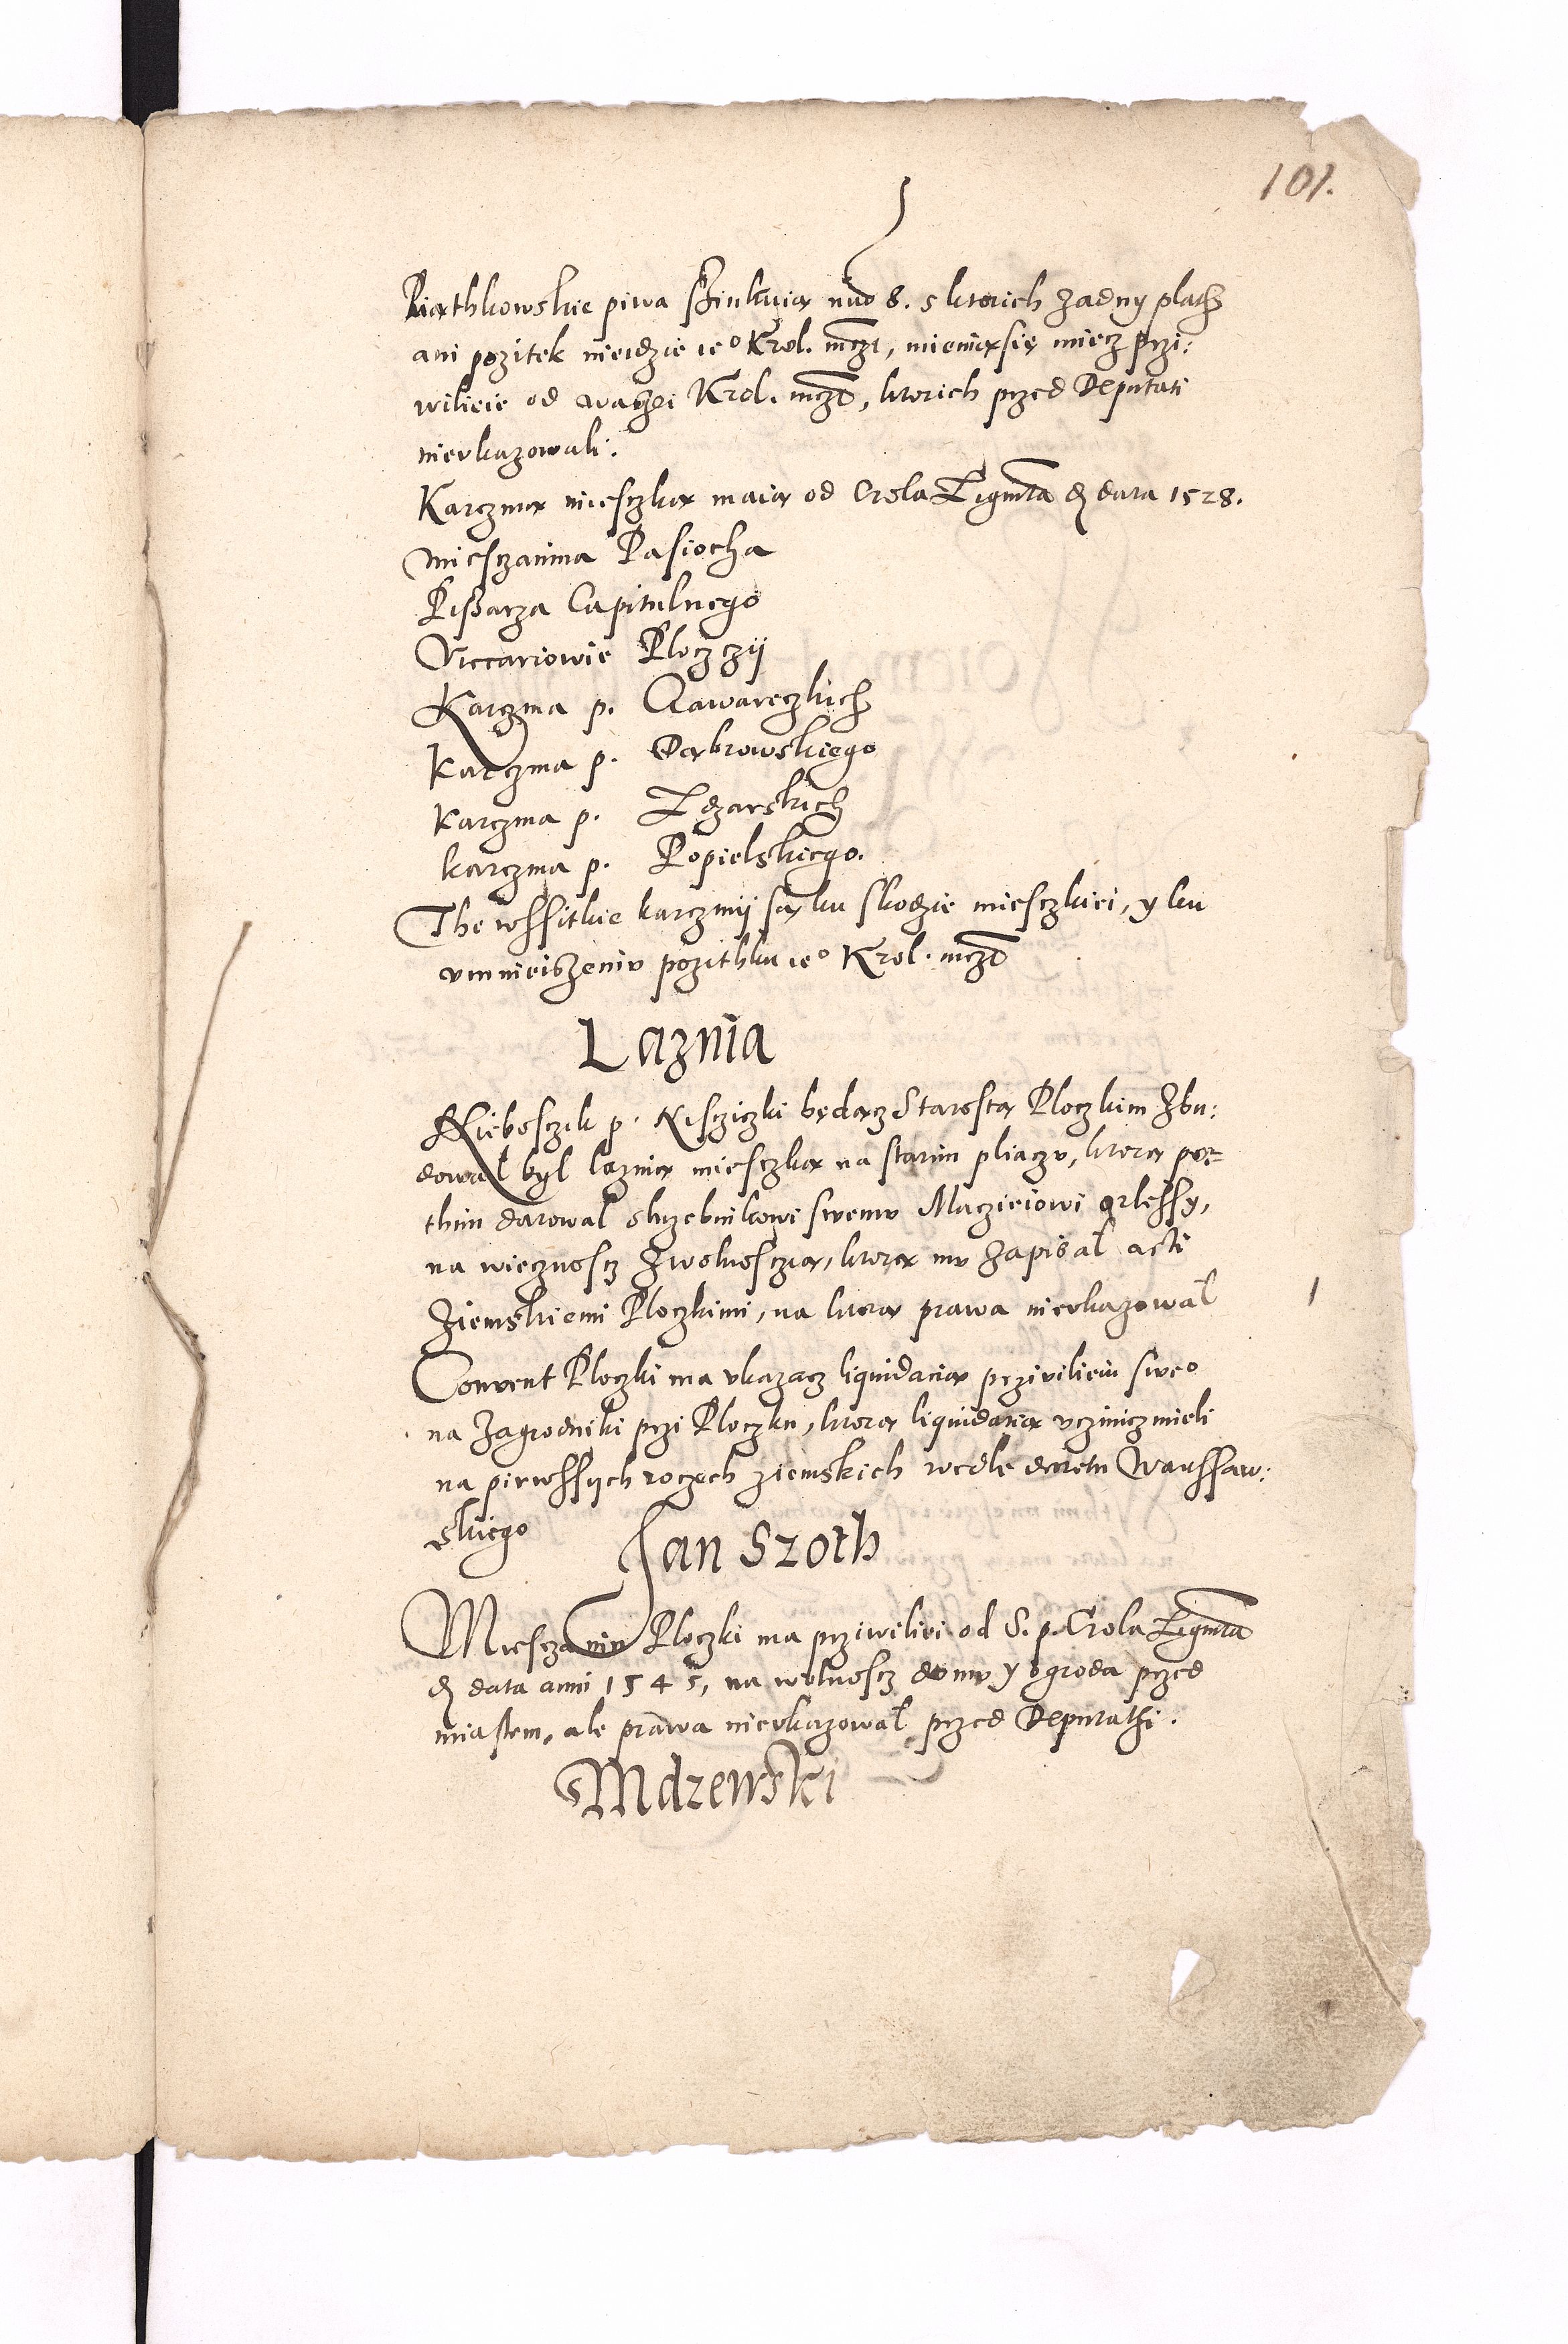 101.
Piąthkowskie piwa ssinkuią nuo 8. s ktorich zadny płath
ani pozitek nieidzie ieº Krol. mczi, mieniąsię miecz przi:
wilieie od waszei Krol. mczi, ktorich przed Deputati
nieukazowali.
Karczmą mieszką maią od Crola Zigmta d data 1528.
Miesczanina Pasiocha
Pissarza Capitulnego
Viccariowie Ploczczÿ
Karczma p. Gawareczkich
Karczma p. Dąbrowskiego
Karczma p. Zdzarskich
karczma p. Popielskiego.
The wssitkie karczmÿ są ku skodzie miesczkiei, y ku
vmnieiszeniv pozithku ieº Krol. mczi
Laznia
Niebosczik p. Nisczicki będącz Starostą Ploczkim Zbu:
dowal byl laznią miesczką na starim pliaczv, ktorą po=
thim darowal sluzebnikowi swemv Maczieiowi orlessy,
na wiecznoscz Zwolnosczią, ktorą mv Zapisal acti
Ziemskiemi Ploczkimi, na ktorą prawa nieukazowal
Convent Ploczki ma vkazacz liquidacią przivilieiu sweº
na Zagrodniki przi Ploczku, ktorą liquidacią vcziniczmieli
na pierwssych roczech ziemskich wedle decretu Warssaw:
skiego
Jan Szoth
Miesczanin Ploczki ma prziwiliei od S. p. Crola Zigmta
d data anni 1545, na wolnoscz domv y ogroda przed
miastem, ale prawa nieukazowal przed Deputathi.
Mdzewski